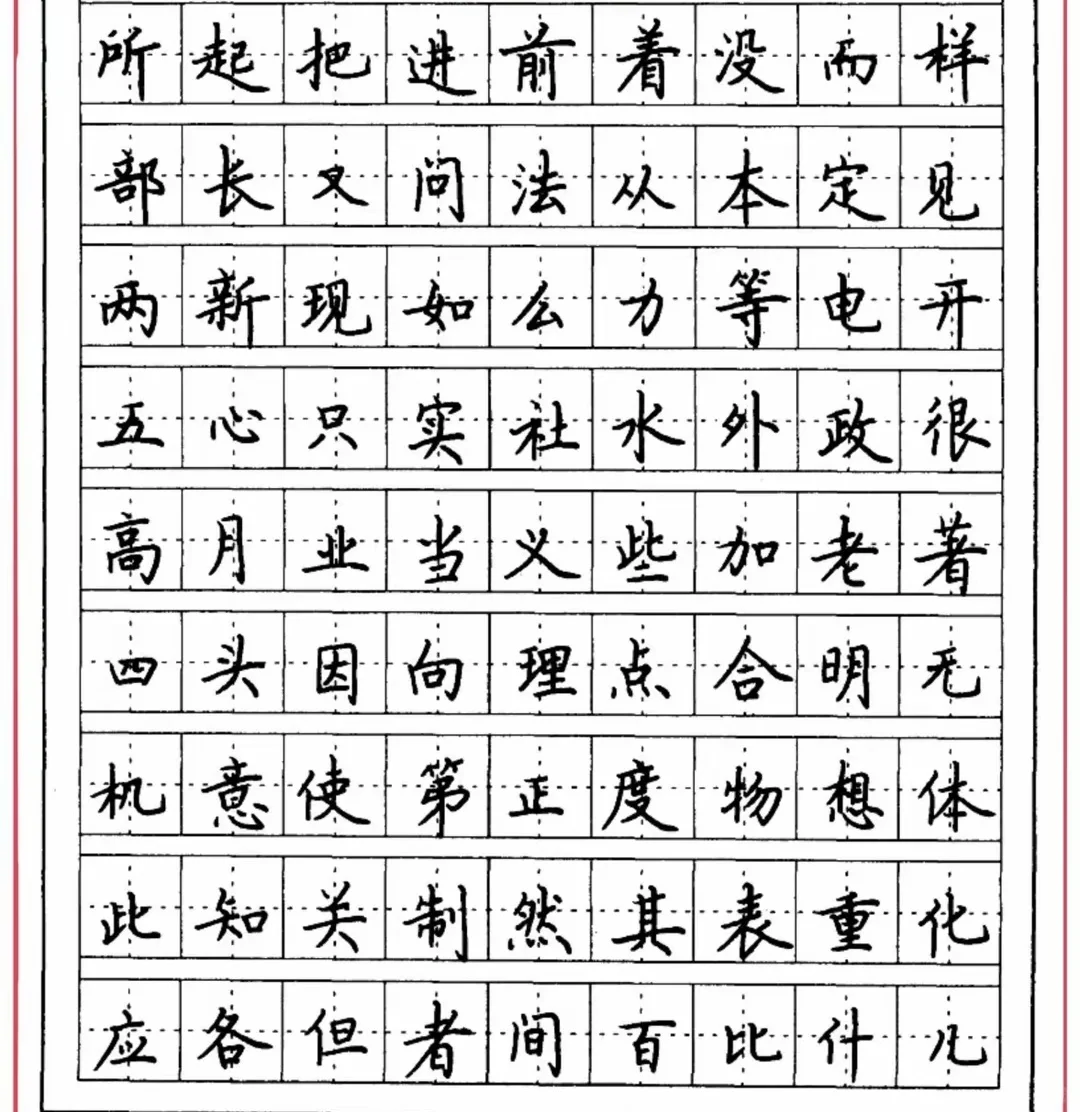 所起把进前着没而样
部长又问法从本定见
两新现如么力等电开
五心只实社水外政很
高月业当义些加老著
四头因向理点合明无
机意使第正度物想体
此知关制然其表重化
应各但者间百比什儿